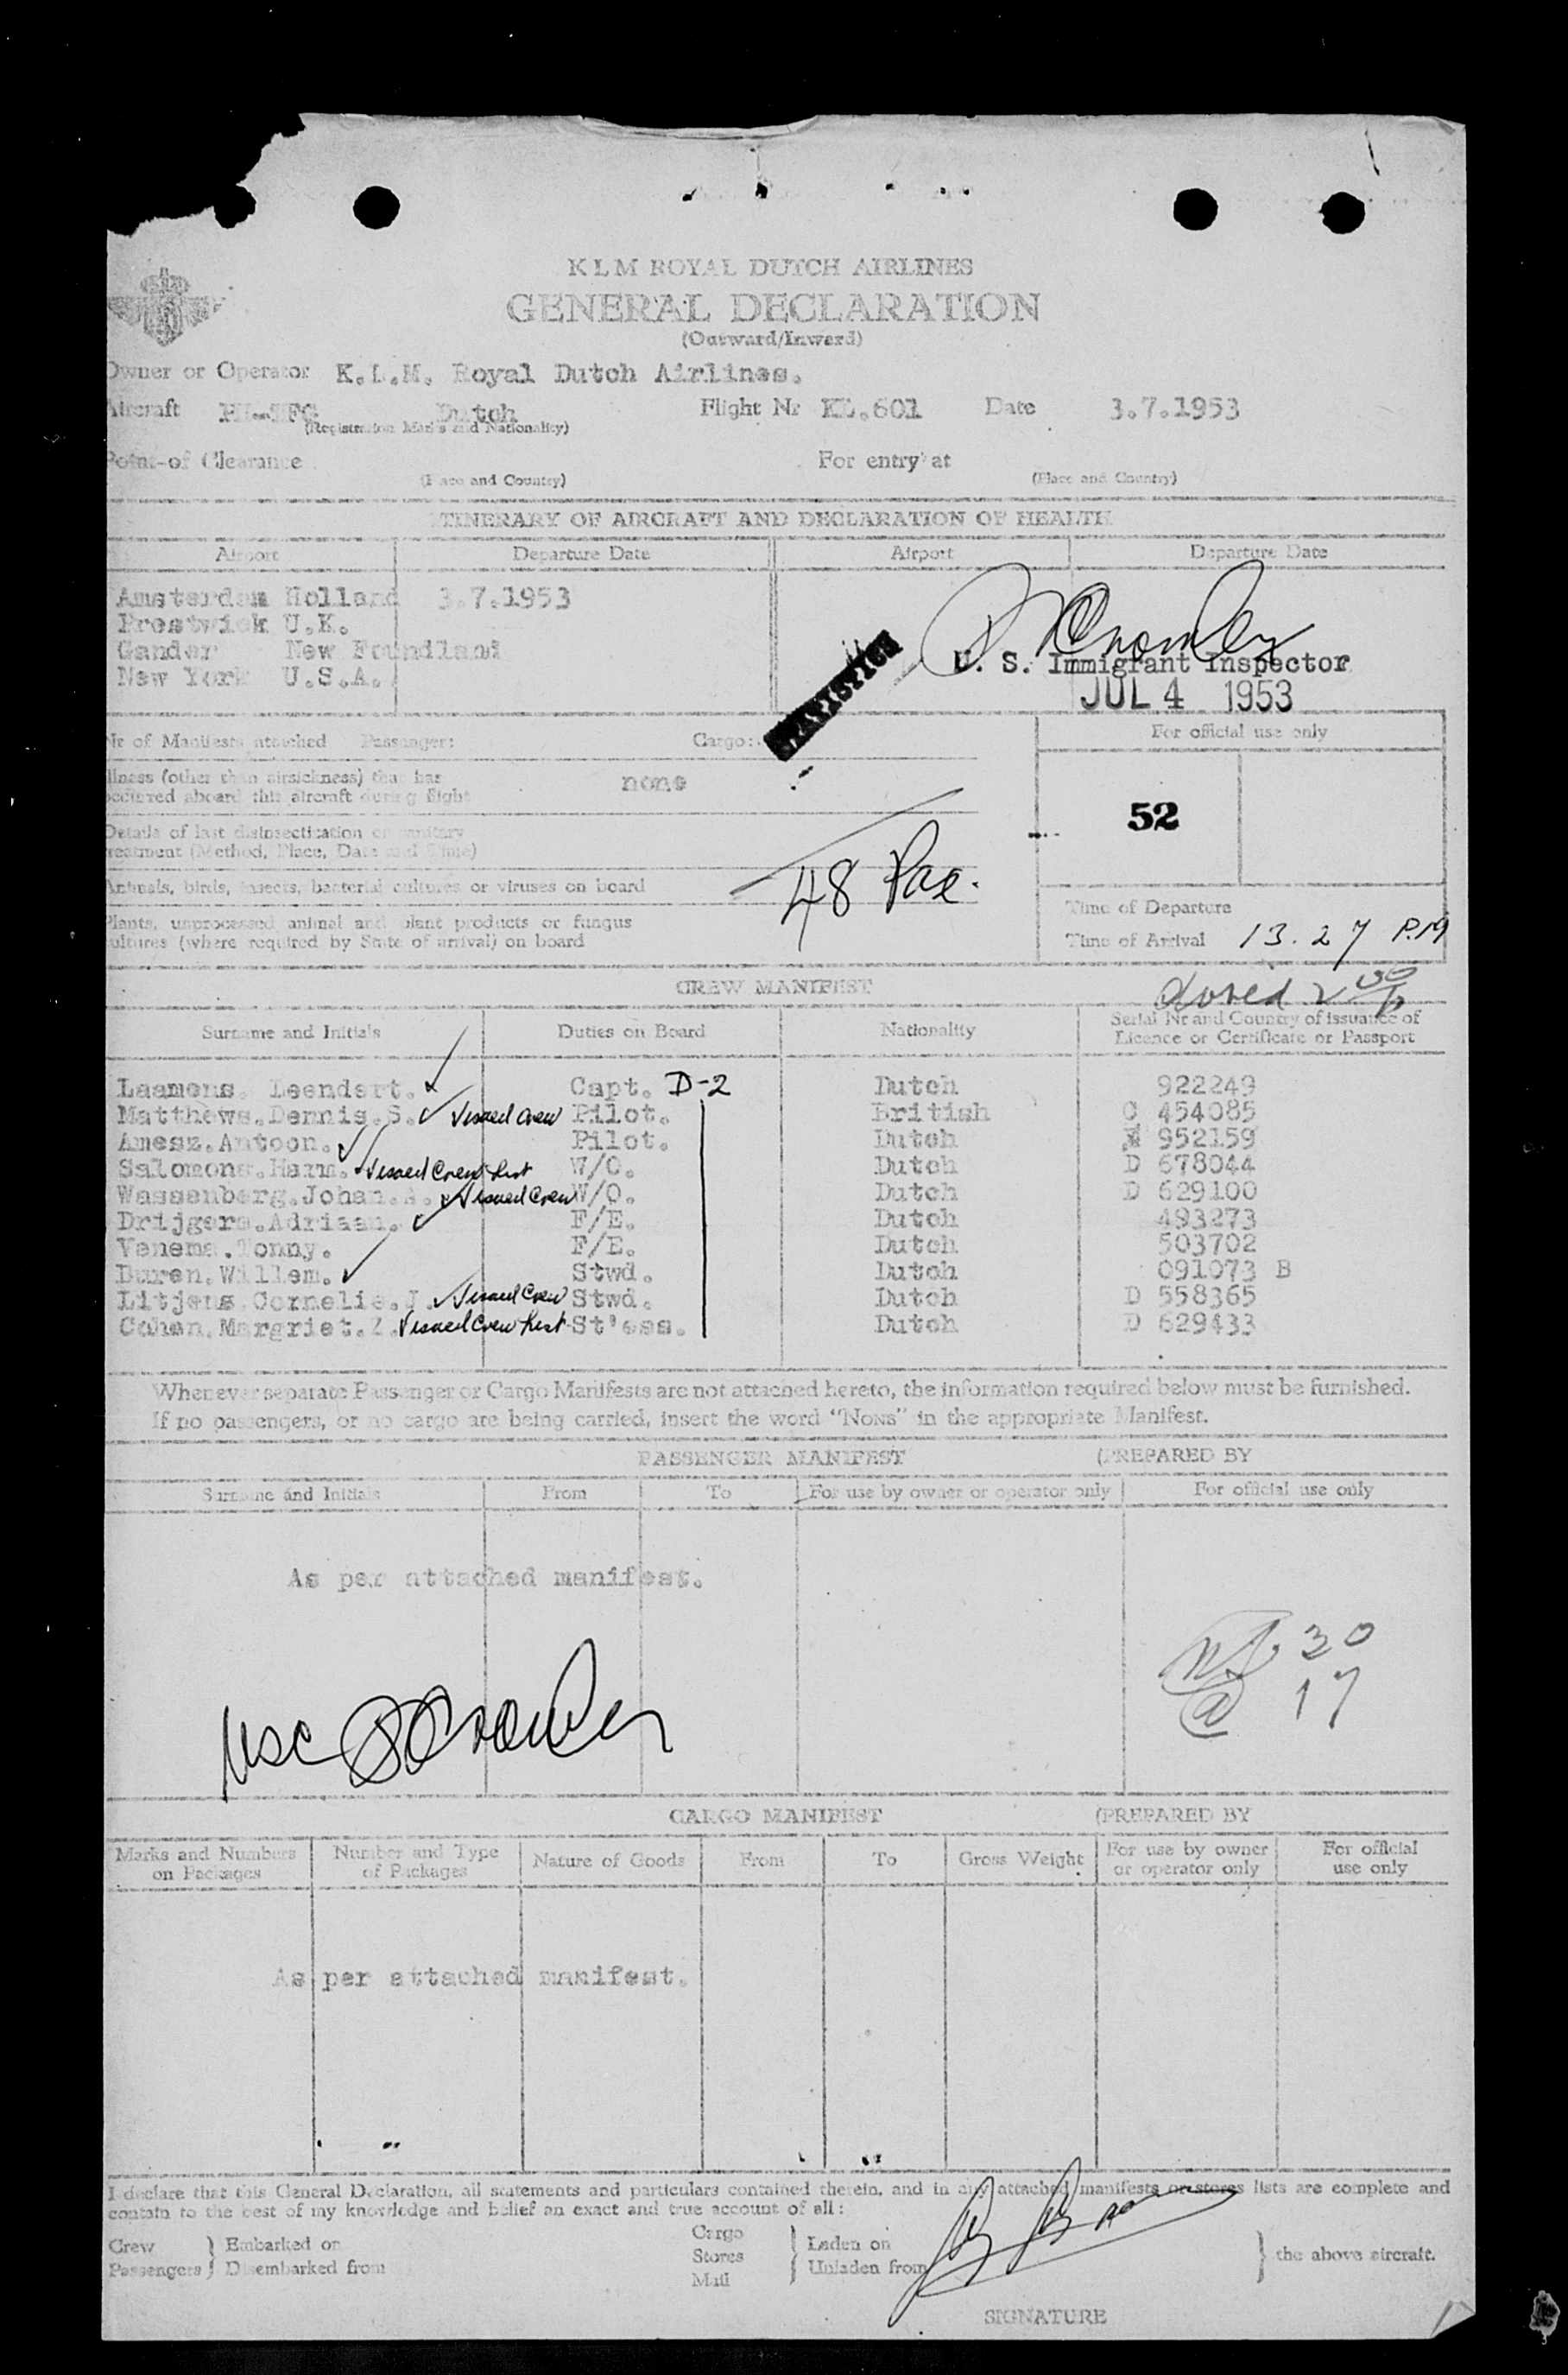 KLM ROYAL DUTCH AIRLINES
GENERAL DECLARATION
(Outward/Inward)
Owner or Operator K.L.M. Royal Dutch Airlines.
Aircraft PH-TFG Dutch Flight Nr KL.601 Date 3.7.1953
(Registration Marks and Nationality)
Point of Clearance For entry at
(Place and Country) (Place and Country)
ITINERARY OF AIRCRAFT AND DECLARATION OF HEALTH
Airport Departure Date Airport Departure Date
Amsterdam Holland 3.7.1953
Prestwick U.K.
Gander New Foundland
New York U.S.A.
U. S. Immigrant Inspector
JUL 4 1953
STATISTICS
Nr of Manifests attached Passenger: Cargo:
For official use only
Illness (other than airsickness) that has
occurred aboard this aircraft during flight none
52
Details of last disinsectisation or sanitary
treatment (Method, Place, Date and Time)
48 Pax.
Animals, birds, insects, bacterial cultures or viruses on board
Plants, unprocessed animal and plant products or fungus
cultures (where required by State of arrival) on board
Time of Departure
Time of Arrival 13.27 P.M
CREW MANIFEST
Surname and Initials Duties on Board Nationality Serial Nr and Country of issuance of
Licence or Certificate or Passport
Laamens. Leendert. Capt. D-2 Dutch 922249
Matthews.Dennis.S. Issued Crew Pilot. British C 454085
Amesz.Antoon. Pilot. Dutch 952159
Salomons.Harm. Issued Crew List W/O. Dutch D 678044
Wassenberg.Johan.A. Issued Crew W/O. Dutch D 629100
Drijgers.Adriaan. F/E. Dutch 493273
Venema.Tonny. F/E. Dutch 503702
Buren.Willem. Stwd. Dutch 091073 B
Litjens.Cornelis.J. Issued Crew Stwd. Dutch D 558365
Cohen.Margriet.Z. Issued Crew List St'ess. Dutch D 629433
Whenever separate Passenger or Cargo Manifests are not attached hereto, the information required below must be furnished.
If no passengers, or no cargo are being carried, insert the word "NONE" in the appropriate Manifest.
PASSENGER MANIFEST (PREPARED BY
Surname and Initials From To For use by owner or operator only For official use only
As per attached manifest.
30
17
CARGO MANIFEST (PREPARED BY
Marks and Numbers on Packages Number and Type of Packages Nature of Goods From To Gross Weight For use by owner or operator only For official use only
As per attached manifest.
I declare that this General Declaration, all statements and particulars contained therein, and in any attached manifests or stores lists are complete and
contain to the best of my knowledge and belief an exact and true account of all:
Crew Passengers } Embarked on Disembarked from Cargo Stores Mail } Laden on Unladen from } the above aircraft.
SIGNATURE